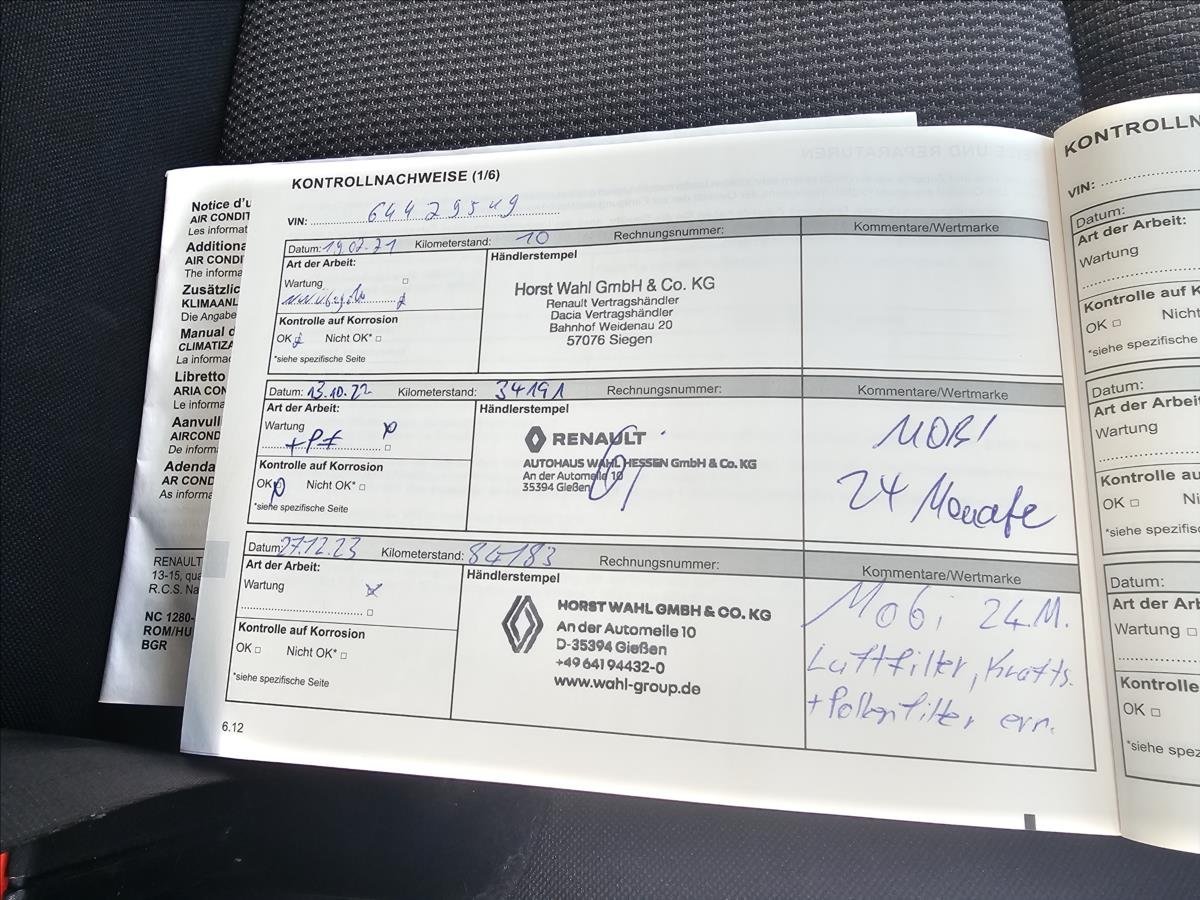 Notice d'u
AIR CONDIT
Les informat
Additiona
AIR CONDI
The informa
Zusätzlic
KLIMAANL
Die Angabe
Manual d
CLIMATIZA
La informac
Libretto
ARIA CON
Le informa
Aanvull
AIRCOND
De inform
Adenda
AR COND
As informa
RENAULT
13-15, qua
R.C.S. Na
NC 1280-
ROM/HU
BGR
KONTROLLNACHWEISE (1/6)
VIN: 64429549
Datum: 19.02.21 Kilometerstand: 10 Rechnungsnummer: Kommentare/Wertmarke
Art der Arbeit: Händlerstempel
Wartung
Horst Wahl GmbH & Co. KG
Renault Vertragshändler
Dacia Vertragshändler
Bahnhof Weidenau 20
57076 Siegen
Kontrolle auf Korrosion
OK Nicht OK*
*siehe spezifische Seite
Datum: 13.10.22 Kilometerstand: 34191 Rechnungsnummer: Kommentare/Wertmarke
Art der Arbeit: Händlerstempel
Wartung
+Pf
RENAULT
AUTOHAUS WAHL HESSEN GmbH & Co. KG
An der Automeile 10
35394 Gießen
MOBI
24 Monate
Kontrolle auf Korrosion
OK Nicht OK*
*siehe spezifische Seite
Datum: 27.12.23 Kilometerstand: 84183 Rechnungsnummer: Kommentare/Wertmarke
Art der Arbeit: Händlerstempel
Wartung
HORST WAHL GMBH & CO. KG
An der Automeile 10
D-35394 Gießen
+49 641 94432-0
www.wahl-group.de
Mobi 24.M.
Luftfilter, Krafts.
+Pollenfilter ern.
Kontrolle auf Korrosion
OK Nicht OK*
*siehe spezifische Seite
6.12
KONTROLLN
VIN:
Datum:
Art der Arbeit:
Wartung
Kontrolle auf K
OK Nicht
*siehe spezifische
Datum:
Art der Arbei
Wartung
Kontrolle au
OK Ni
*siehe spezifisc
Datum:
Art der Arb
Wartung
Kontrolle
OK
*siehe spez